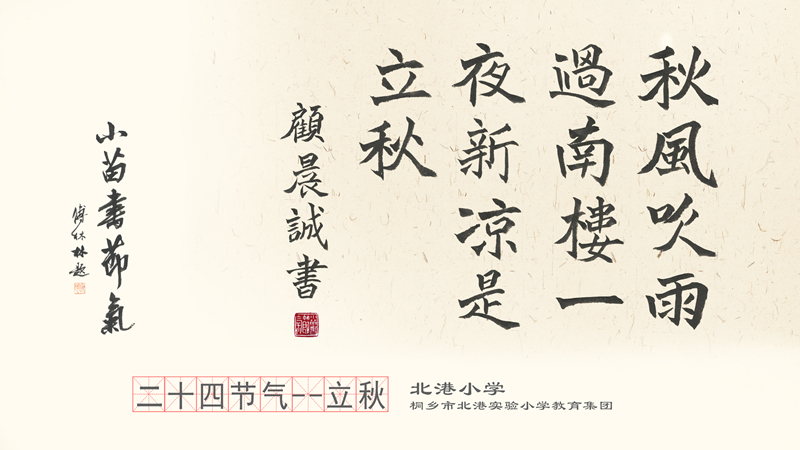 秋風吹雨
過南樓一
夜新涼是
立秋
顧晨誠書
小苗書節氣
林題
二十四节气--立秋
北港小学
桐乡市北港实验小学教育集团